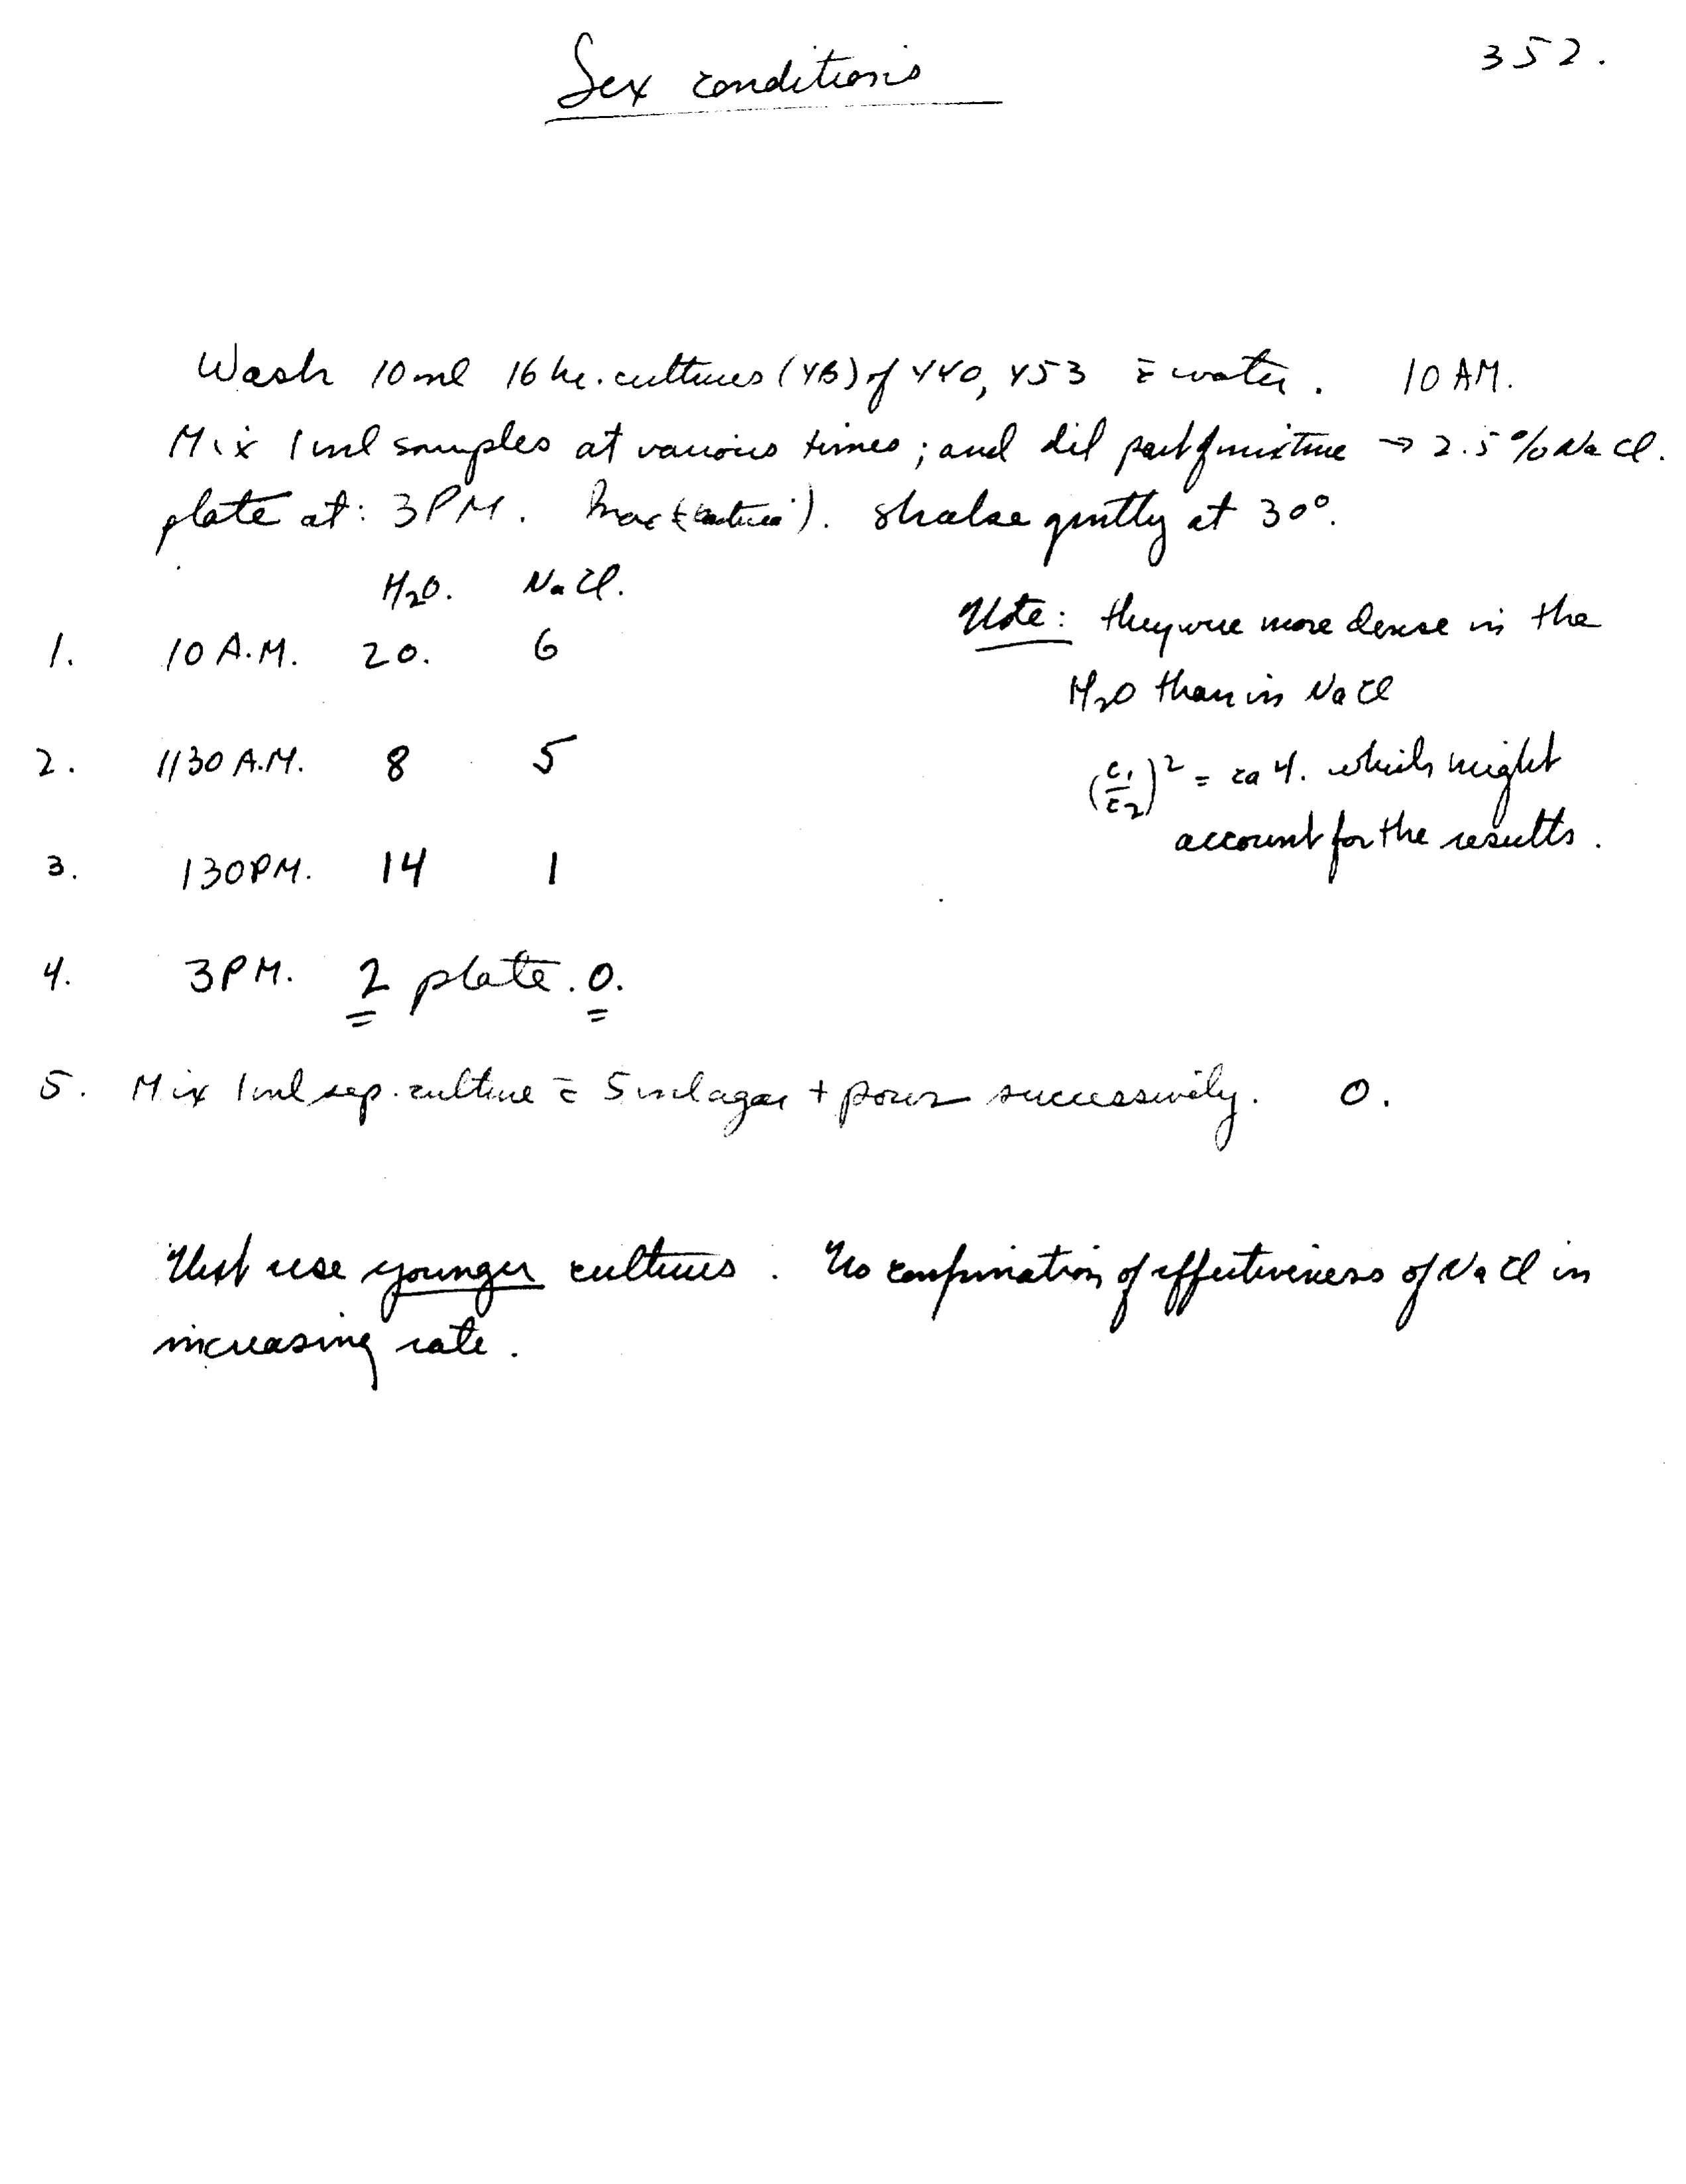 Sex conditions
352.
Wash 10 ml 16 hr. cultures (YB) of Y40, Y53 c̄ water. 10 AM.
Mix 1 ml samples at various times; and dil part of mixture → 2.5% NaCl.
plate at: 3PM. shake gently at 30°.
H2O. NaCl.
1. 10 A.M. 20. 6
2. 1130 A.M. 8 5
3. 130PM. 14 1
4. 3PM. 2 plate. 0.
Note: they were more dense in the
H2O than in NaCl
(c1/c2)² = ca 4. which might
account for the results.
5. Mix 1 ml sep. culture c̄ 5 ml agar + pour successively. 0.
Must use younger cultures. No confirmation of effectiveness of NaCl in
increasing rate.